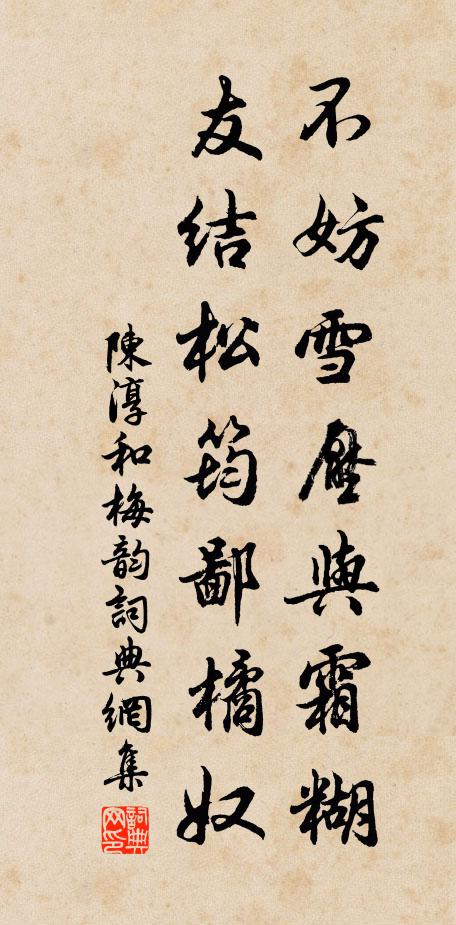 不妨雪壓與霜糊
友結松筠鄙橘奴
陳淳和梅韵詞典網集
詞典网印